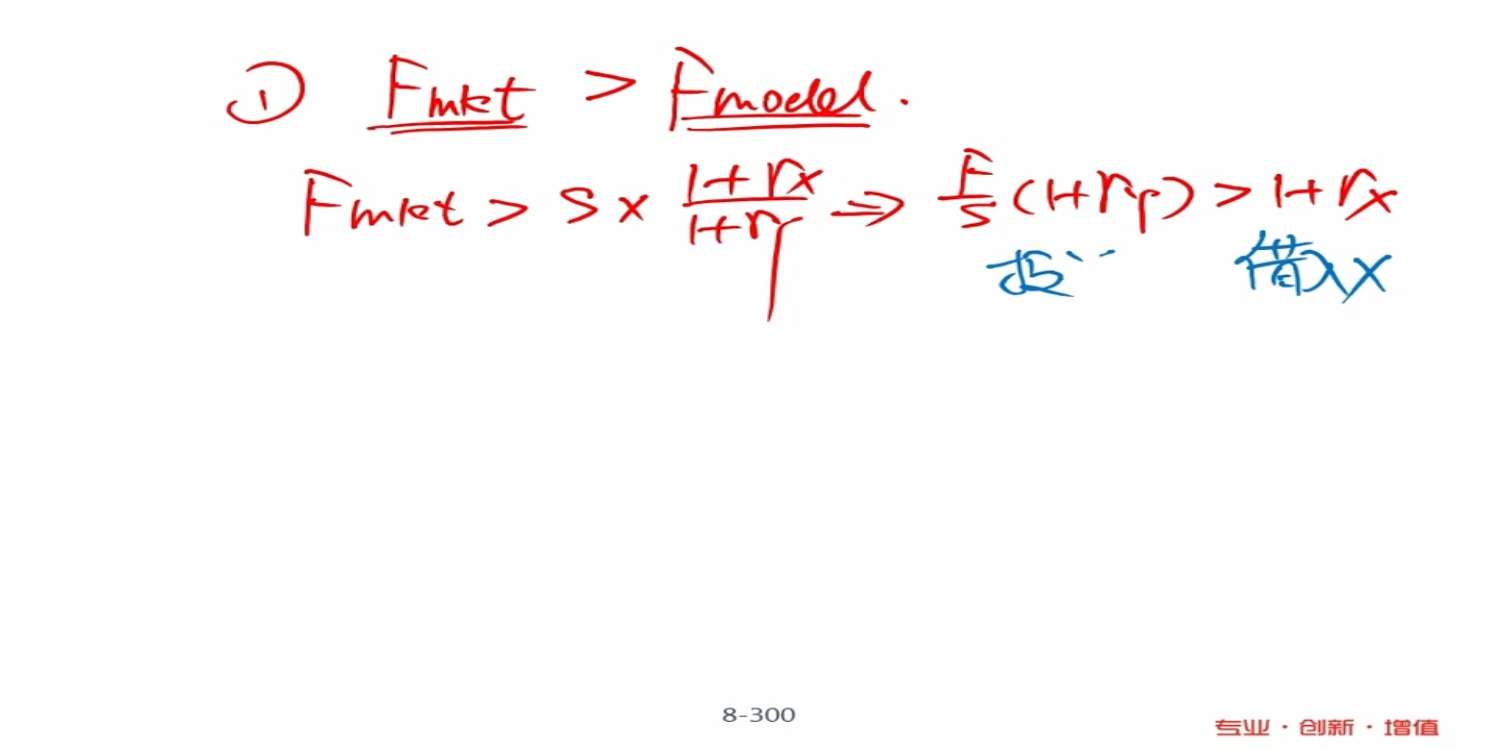 ① Fmkt > Fmodel.
Fmkt > S × (1+rx)/(1+ry) ⇒ F/S (1+ry) > 1+rx
投 借入X
8-300
专业·创新·增值